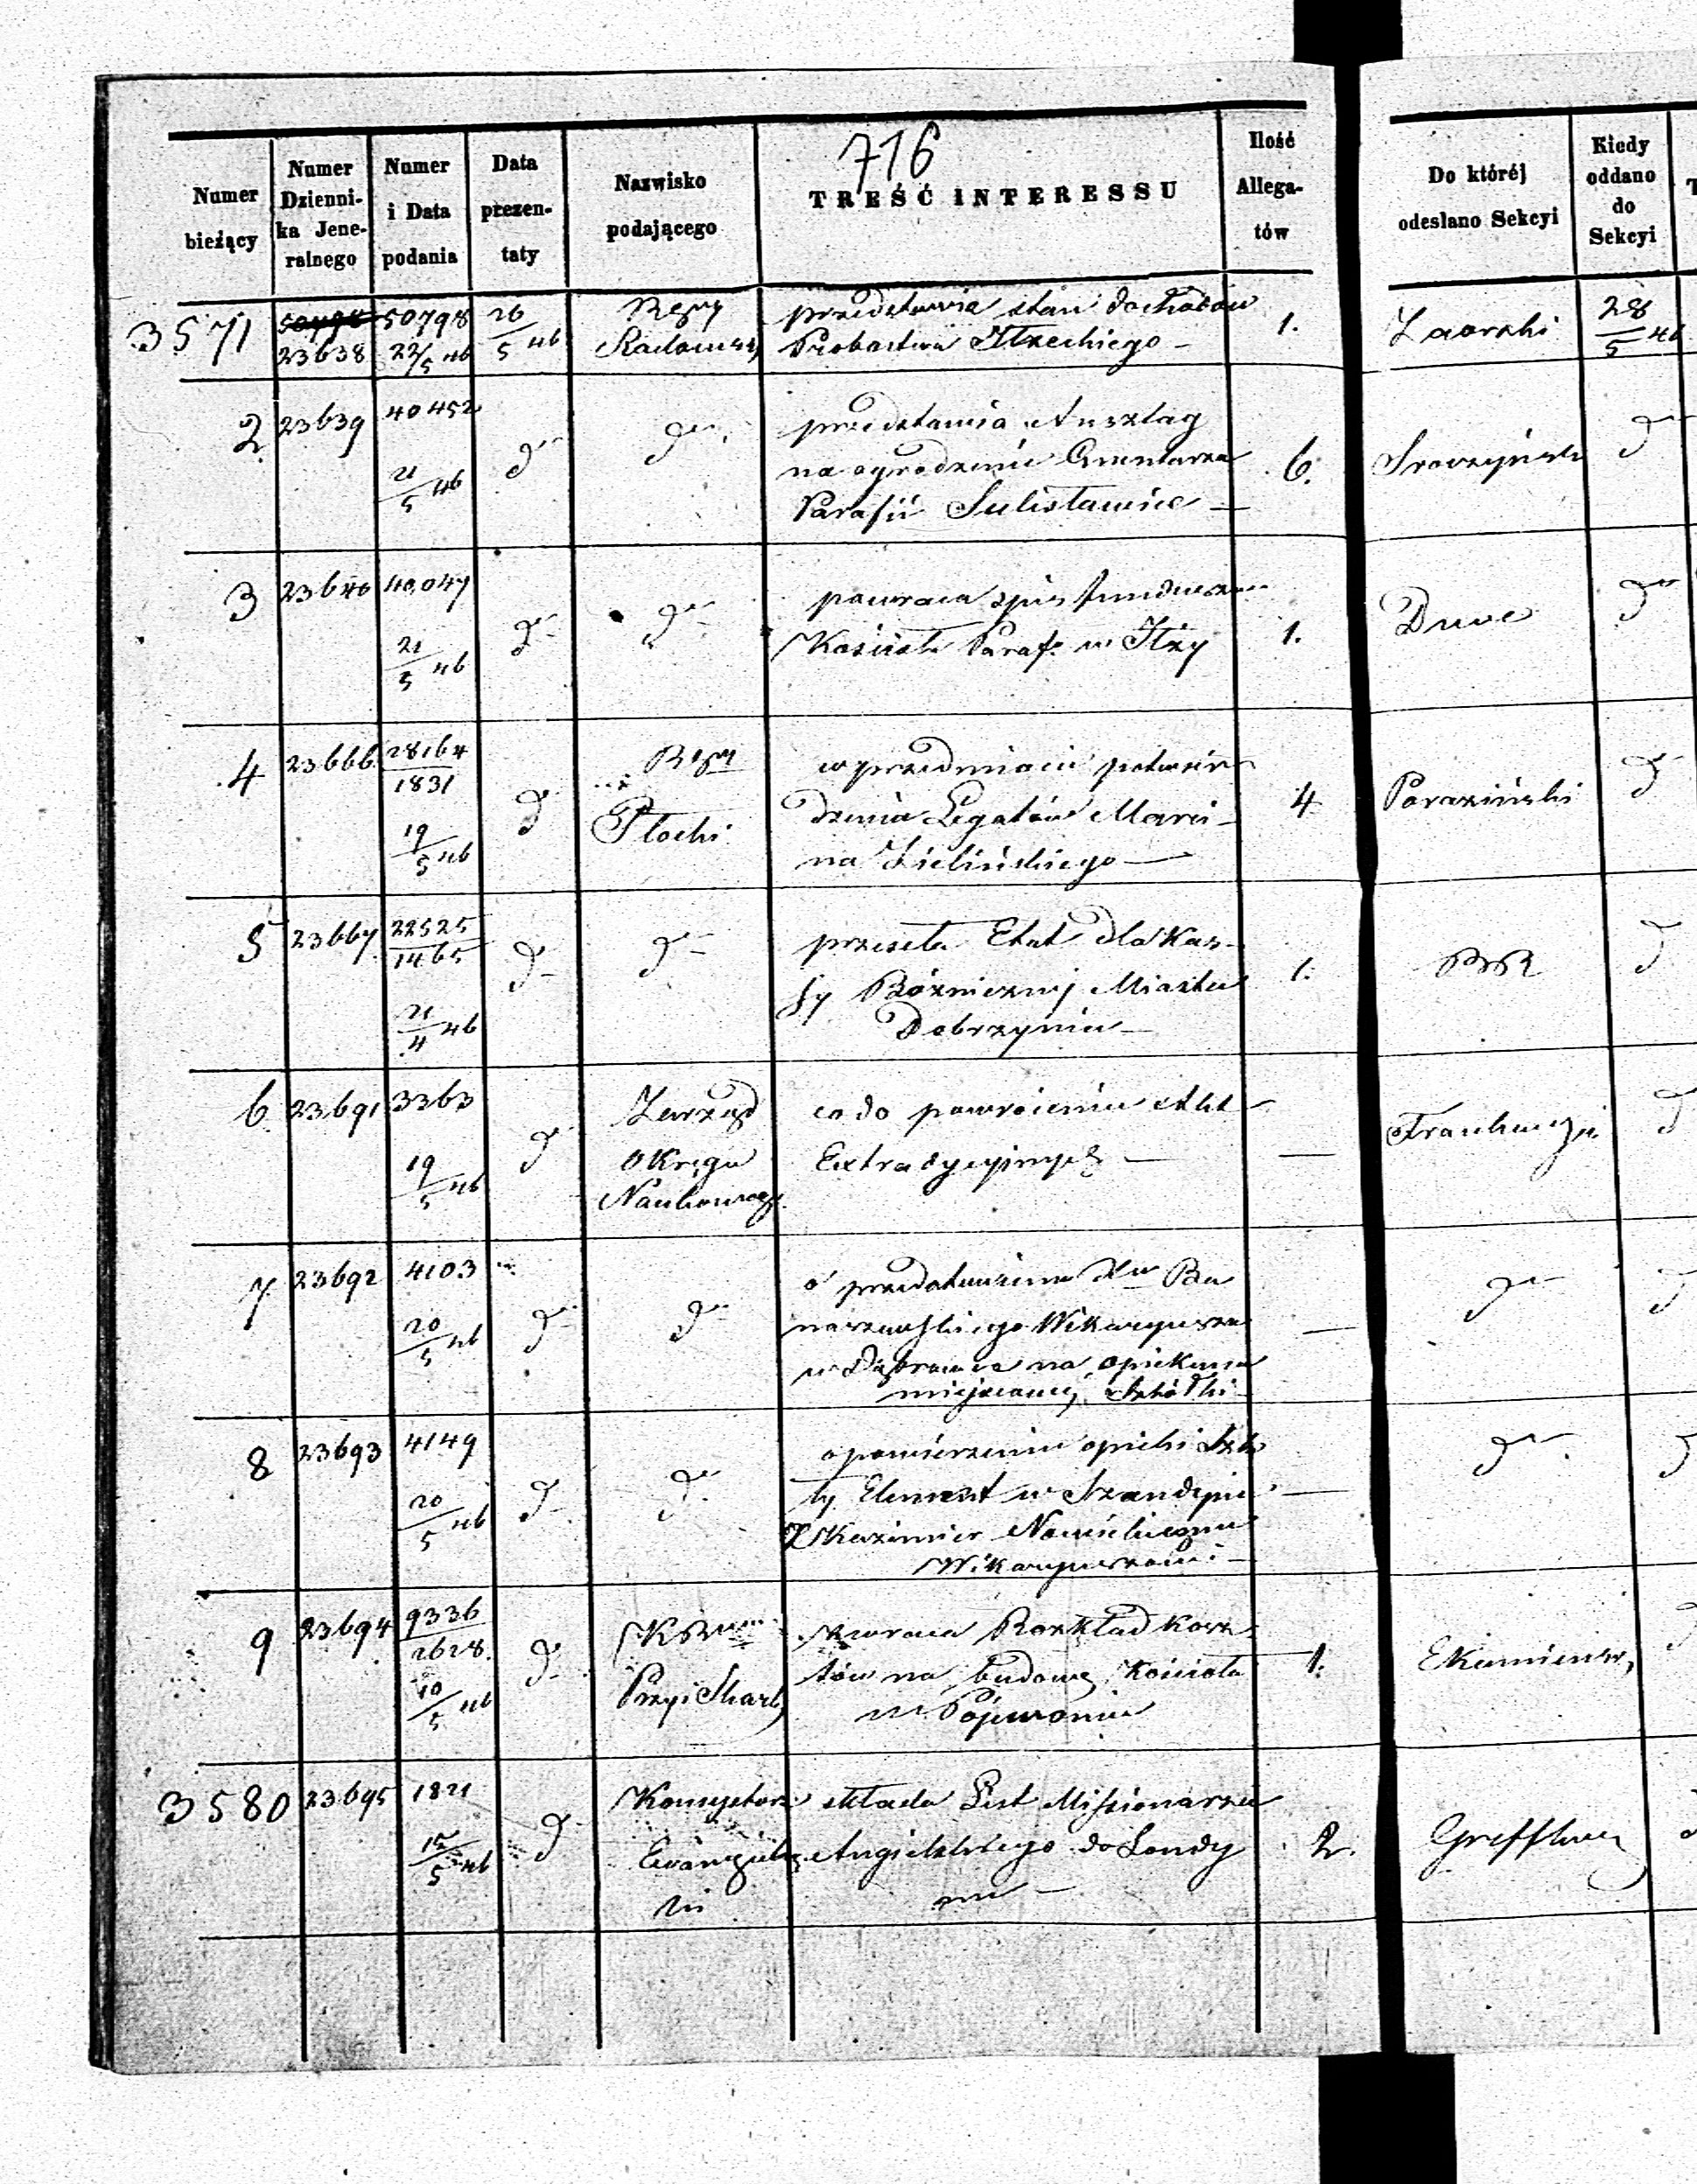 716
Numer bieżący
Numer Dzienni-ka Jene-ralnego
Numer i Data podania
Data prezen-taty
Nazwisko podającego
TREŚĆ INTERESSU
Ilość Allega-tów
Do któréj odesłano Sekcyi
Kiedy oddano do Sekcyi
3571
23638
50798
22/5 46
26/5 46
Radomski
przedstawia stan dochodów
Probostwa Iłżeckiego —
1.
Zaorski
28/5 46
2
23639
40452
21/5 46
do
do
przedstawia Anszlag
na ogrodzenie Cmentarza
Parafii Sulisławice —
6.
do
3
23640
40,047
21/5 46
do
do
powraca spis funduszów
Kościoła Paraf. w Iłży
1.
Duve
do
4
23666
28164
1831
19/5 46
do
Płocki
w przedmiocie potwier-
dzenia Legatów Marci-
na Zielińskiego —
4
Paraziński
do
5
23667
22525
1465
21/4 46
do
do
przeseła Etat dla Kas-
sy Bóżnicznej Miasta
Dobrzynia —
1.
BR
do
6
23691
3363
19/5 46
do
Zarząd
Okręgu
Naukowego
co do powrócenia Akt
Extradycyjnych —
—
do
7
23692
4103
20/5 46
do
do
o przedstawieniu Xa
Wikaryusza
w Dąbrowie na opiekuna
miejscowej Szkółki
—
do
do
8
23693
4149
20/5 46
do
do
o powierzeniu opieki Szko
ły Element w
X Kazimier
Wikaryuszowi —
—
do
9
23694
9336
2628
10/5 46
do
Przy i Skarb
zwraca Rozkład kosz-
tów na budowę Kościoła
w Pojewoniu
1.
do
3580
23695
1821
15/5 46
do
Konsystorz
Ewangielic
ki
składa List Missionarza
Angielskiego do Londy
nu —
2.